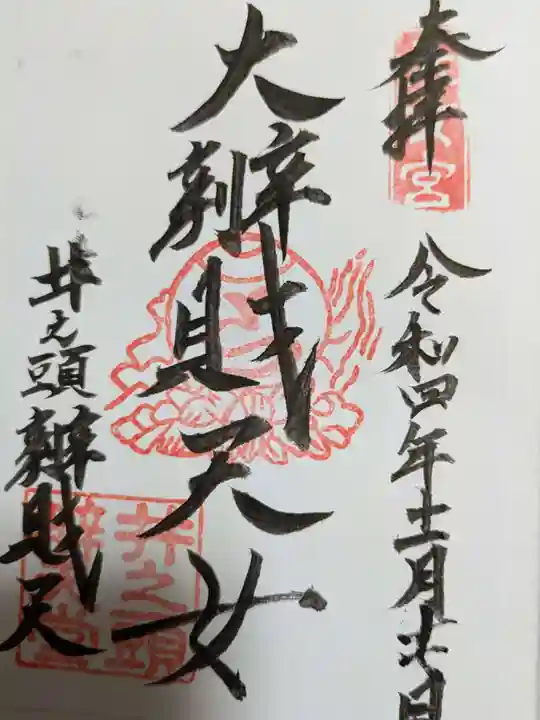 奉拝
令和四年十一月
大辨財天女
井之頭辨財天
宮
井之頭